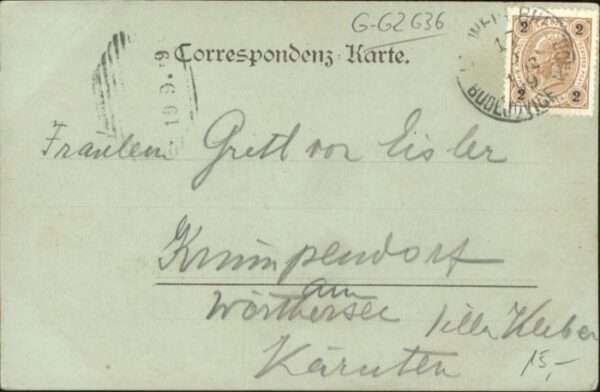 G-G2636
Correspondenz-Karte.
2 2
2 2
BUDĚJOVICE
Fräulein Gretl von Eisler
Krumpendorf
am
Wörthersee Villa Kleber
Kärnten
15,-